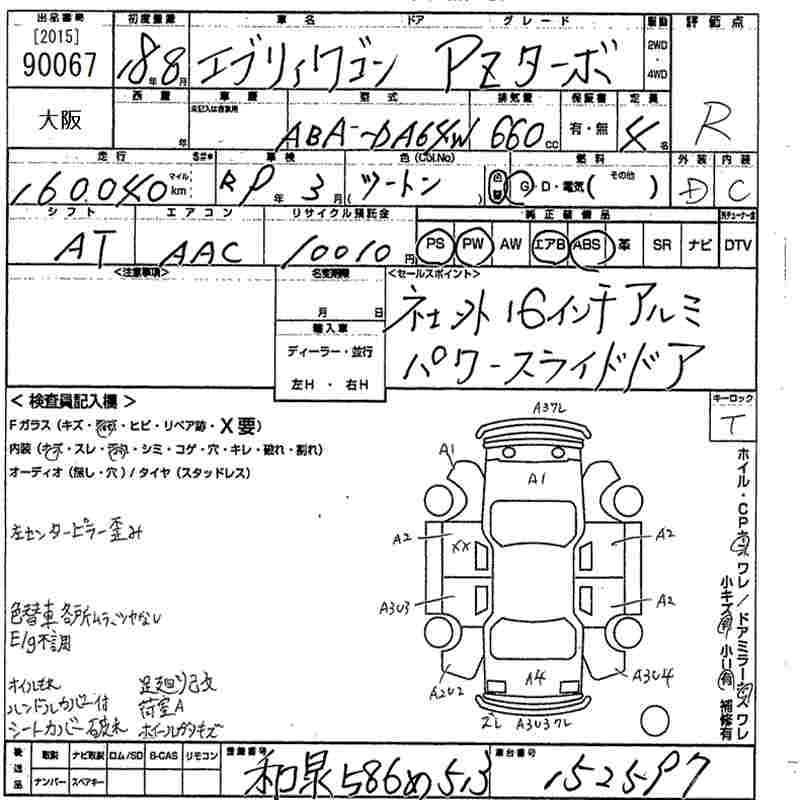 出品番号 初度登録 車名 ドア グレード 駆動 評価点
[2015]
90067
18年8月 エブリィワゴン PZターボ 2WD・4WD
大阪
西暦 車歴 型式 排気量 保証書 定員
年 ABA-DA64W 660cc 有・無 4名 R
走行 S#* 車検 色(Col.No) 燃料 外装 内装
160,040 マイル km 年 3月 (ツートン) 色替 G・D・電気(その他) D C
シフト エアコン リサイクル預託金 純正装備品
AT AAC 10010円 PS PW AW エアB ABS 革 SR ナビ DTV
<注意事項> 名変期限 <セールスポイント>
月 日
輸入車
ディーラー・並行
左H・右H
社外16インチアルミ
パワースライドドア
<検査員記入欄> キーロック
Fガラス(キズ・・ヒビ・リペア跡・X要) T
内装(キズ・スレ・・シミ・コゲ・穴・キレ・破れ・割れ)
オーディオ(無し・穴)/タイヤ(スタッドレス)
左センターピラー歪み
色替車各所ムラ、ツヤなし
E/g不調
オイルモレ 足廻り改
ハンドルカバー付 荷室A
シートカバー破れ ホイールガリキズ
A3フL
A1
A1
A2 XX A2
A3U3 A2
A2U2 A4 A3U4
A3U3フL
ホイル・CPキズワレ/ドアミラーキズワレ
小キズ有 小U有 補修有
後送品 取説 ナビ取説 ロム/SD B-CAS リモコン 登録番号 車台番号
ナンバー スペアキー 和泉586め513 1525P7